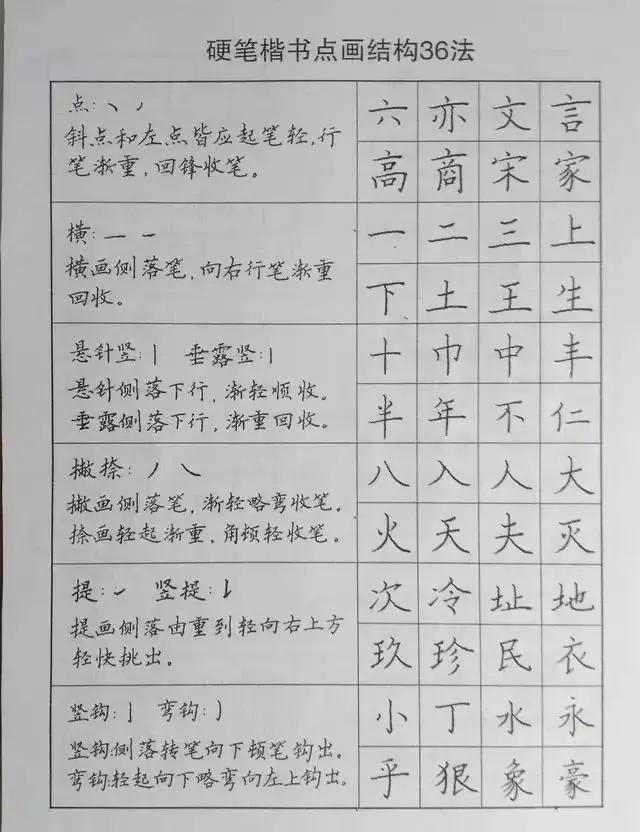 硬笔楷书点画结构36法
点:丶 ノ
斜点和左点皆应起笔轻,行
笔渐重,回锋收笔。
六 亦 文 言
高 商 宋 家
横:一 一
横画侧落笔,向右行笔渐重
回收。
一 二 三 上
下 土 王 生
悬针竖:丨 垂露竖:丨
悬针侧落下行,渐轻顺收。
垂露侧落下行,渐重回收。
十 巾 中 丰
半 年 不 仁
撇捺:ノ ㇏
撇画侧落笔,渐轻略弯收笔。
捺画轻起渐重,角顿轻收笔。
八 入 人 大
火 天 夫 灭
提:㇀ 竖提:𠄌
提画侧落由重到轻向右上方
轻快挑出。
次 冷 址 地
玖 珍 民 衣
竖钩:亅 弯钩:㇁
竖钩:侧落转笔向下顿笔钩出。
弯钩:轻起向下略弯向左上钩出。
小 丁 水 永
乎 狠 象 豪